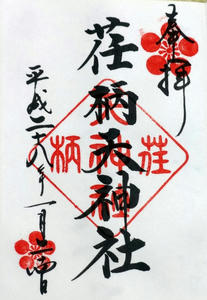 奉拝
荏柄天神社
平成二十八年一月二 日
荏
柄